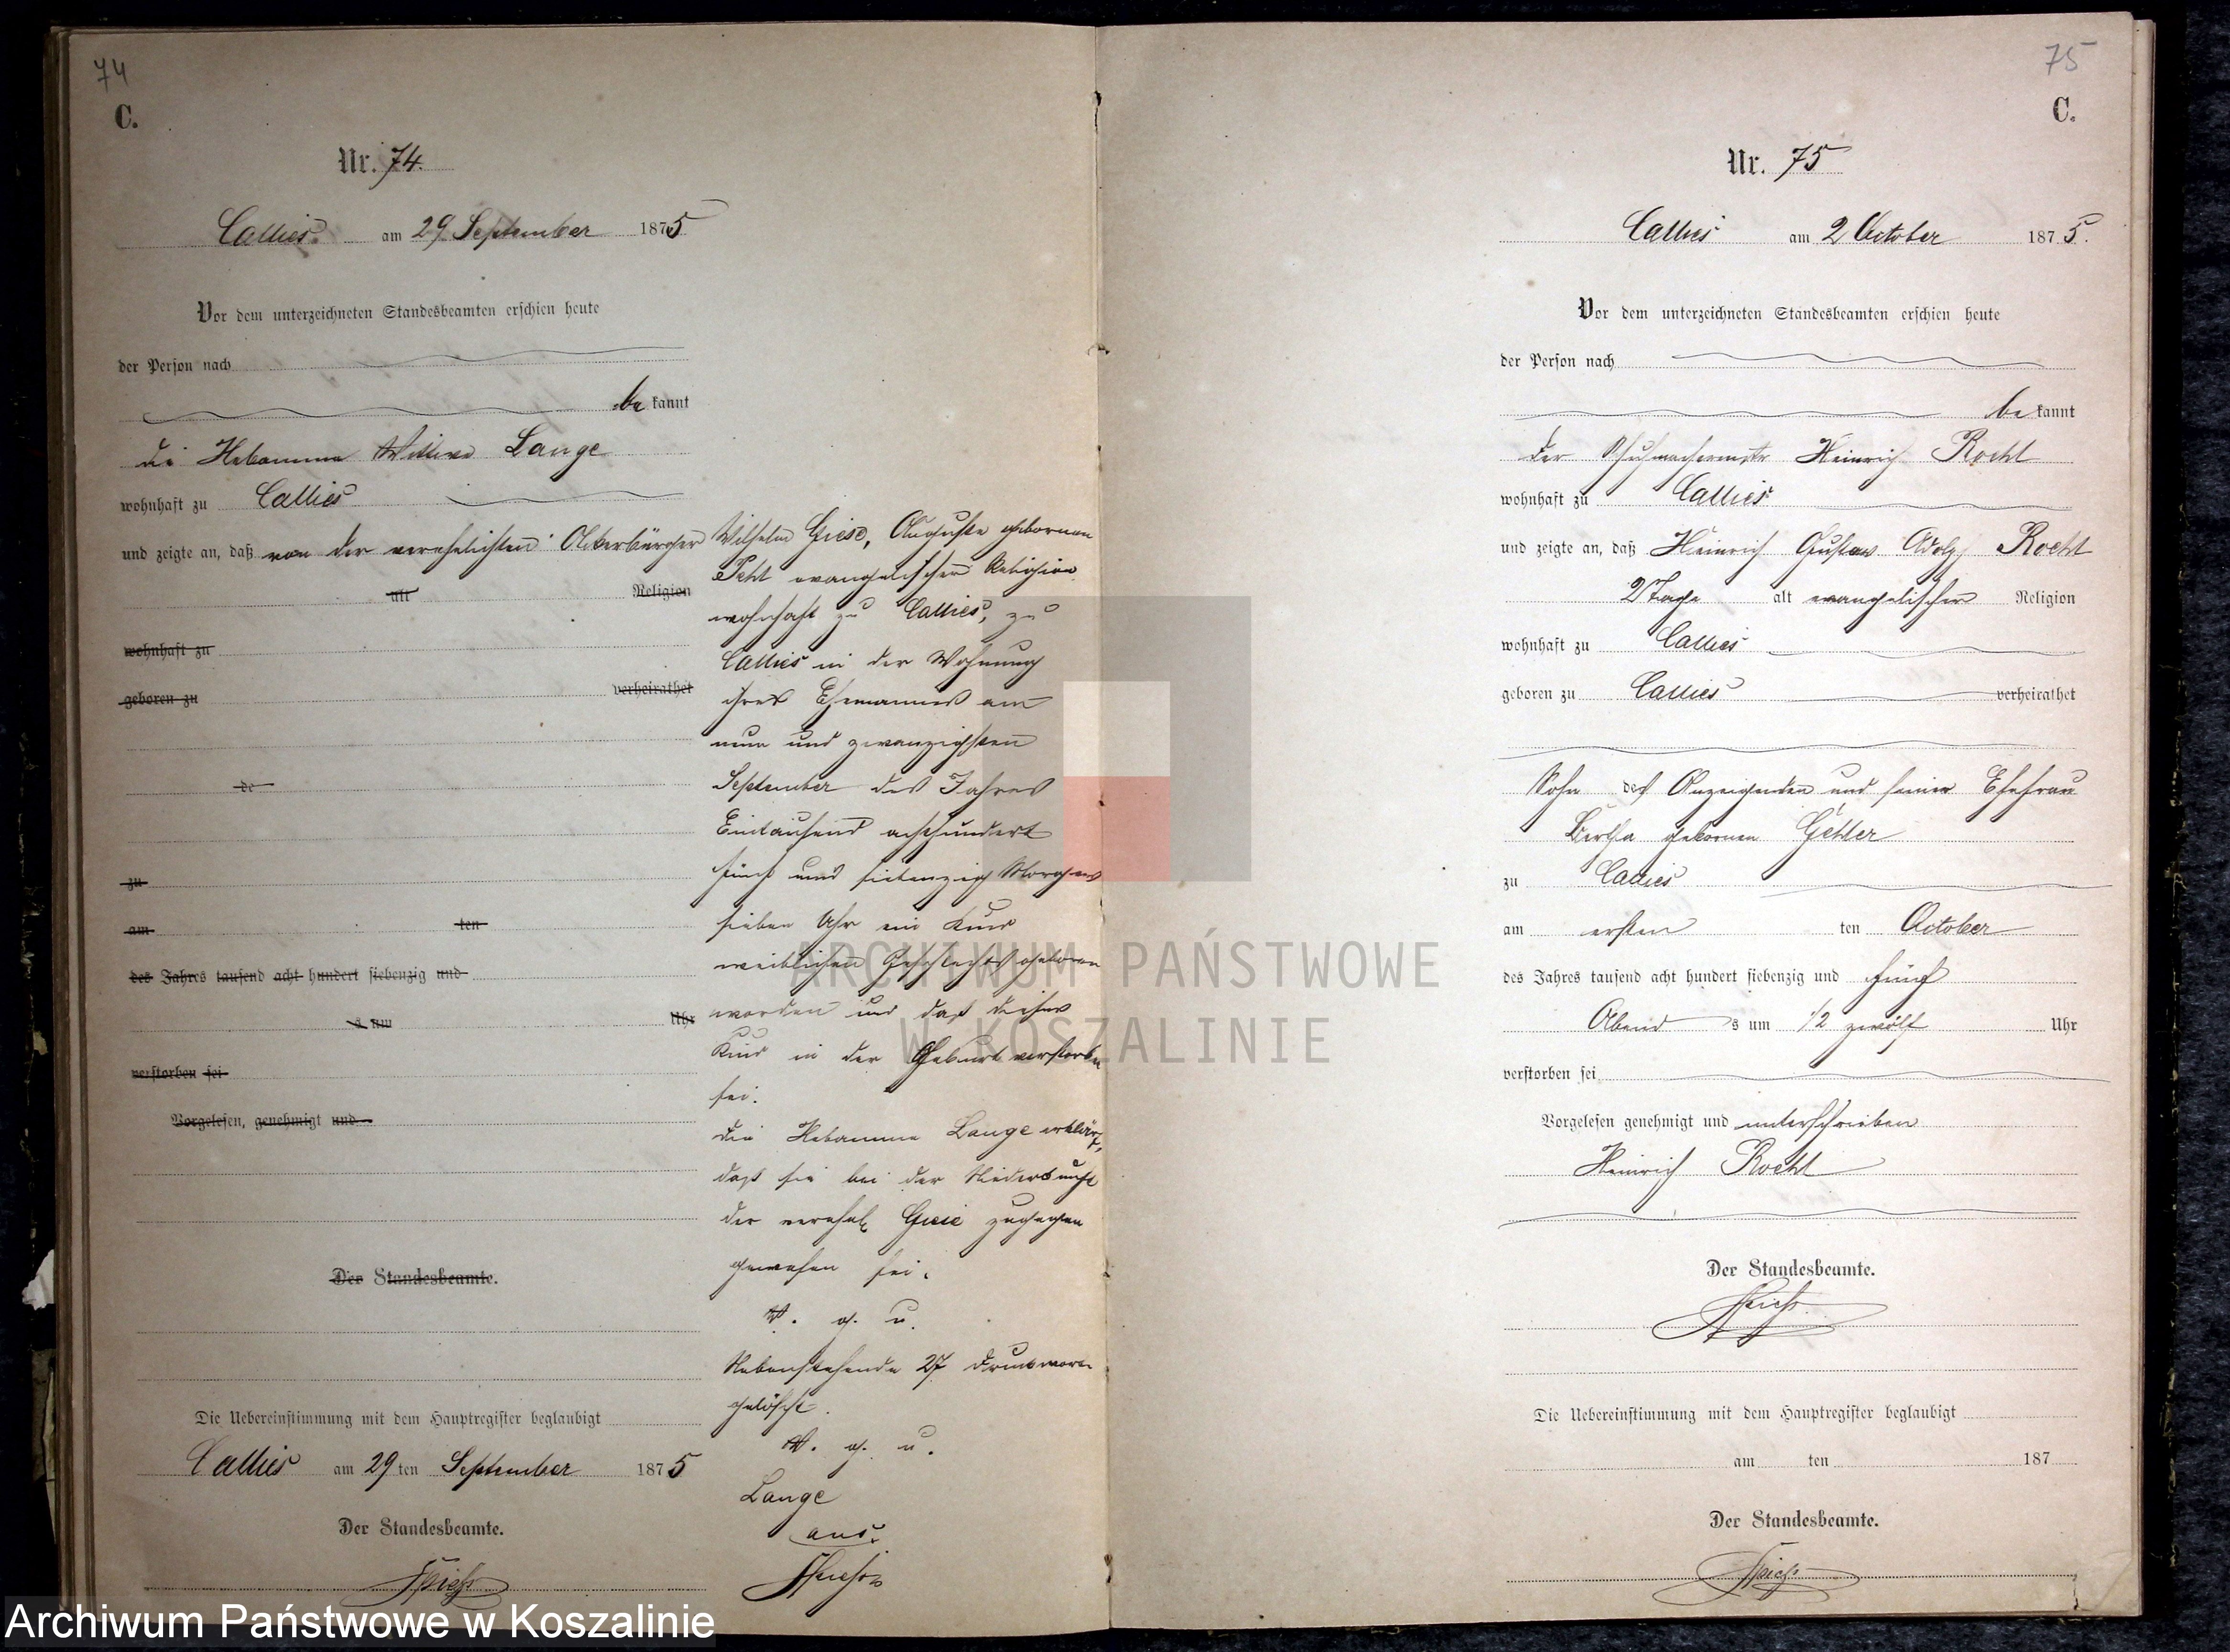 74
C.
Nr. 74.
Callies am 29 September 1875
Vor dem unterzeichneten Standesbeamten erschien heute
der Person nach
be kannt
die Hebamme Wittwe Lange
wohnhaft zu Callies
und zeigte an, daß von der verehelichten Ackerbürger
alt Religion
wohnhaft zu
geboren zu verheirathet
de
zu
am ten
des Jahres tausend acht hundert siebenzig und
s um Uhr
verstorben sei
Vorgelesen, genehmigt und
Der Standesbeamte.
Die Uebereinstimmung mit dem Hauptregister beglaubigt
Callies am 29 ten September 1875
Der Standesbeamte.
Wilhelm Giese, Auguste geborenen
evangelischer Religion
wohnhaft zu Callies, zu
Callies in der Wohnung
ihres Ehemannes am
neun und zwanzigsten
September des Jahres
Eintausend achthundert
fünf und siebenzig Morgens
sieben Uhr ein Kind
weiblichen Geschlechts geboren
worden und daß dieses
Kind in der Geburt verstorben
sei.
Die Hebamme Lange erklärt,
daß sie bei der Niederkunft
der verehel. Giese zugegen
gewesen sei.
V. g. u.
Nebenstehende 27 Druckworte
gelöscht.
V. g. u.
Lange
75
C.
Nr. 75
Callies am 2 October 1875.
Vor dem unterzeichneten Standesbeamten erschien heute
der Person nach
be kannt
der Schuhmachermstr Heinrich Roehl
wohnhaft zu Callies
und zeigte an, daß Heinrich Gustav Adolph Roehl
2 Tage alt evangelischer Religion
wohnhaft zu Callies
geboren zu Callies verheirathet
Sohn des Anzeigenden und seiner Ehefrau
Bertha geborenen
zu Callies
am ersten ten October
des Jahres tausend acht hundert siebenzig und fünf
Abend s um 1/2 zwölf Uhr
verstorben sei
Vorgelesen genehmigt und unterschrieben
Heinrich Roehl
Der Standesbeamte.
Die Uebereinstimmung mit dem Hauptregister beglaubigt
am ten 187
Der Standesbeamte.
ARCHIWUM PAŃSTWOWE
W KOSZALINIE
Archiwum Państwowe w Koszalinie